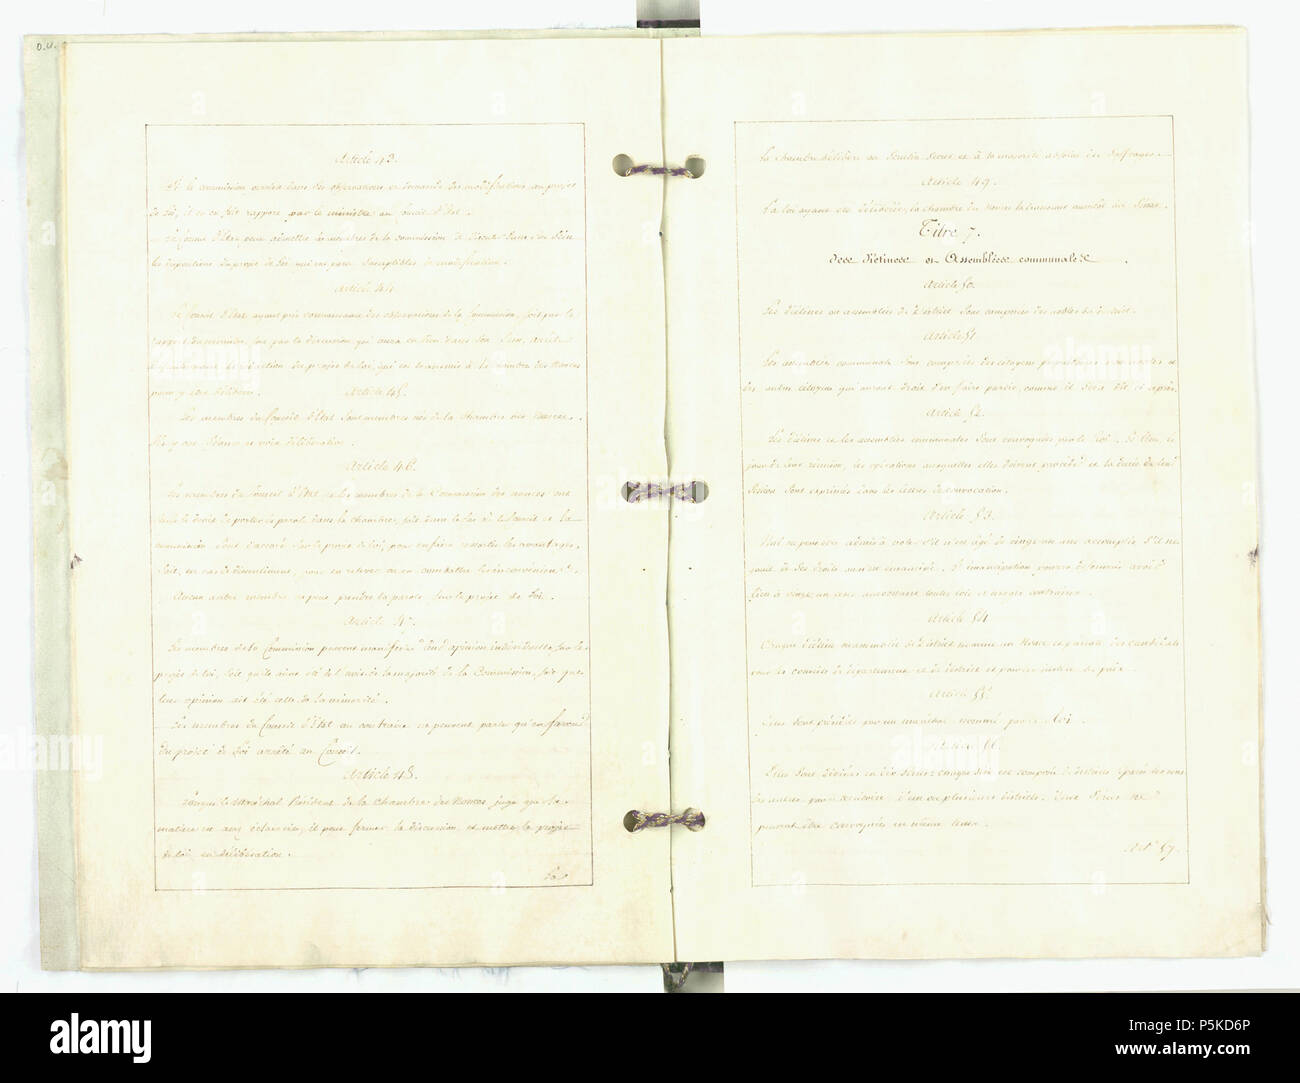 O.II.9
Article 43.
Si la commission croit dans ses observations en demande des modifications au projet
de loi, il en est fait rapport par le ministre au Conseil d'État.
Le Conseil d'État peut admettre les membres de la commission de discuter dans son sein
les dispositions du projet de loi qui seraient susceptibles de modification.
Article 44
Le Conseil d'État ayant pris connaissance des observations de la Commission, soit par le
rapport du ministre, soit par la discussion qui aura eu lieu dans son sein, arrête
définitivement la rédaction du projet de loi, qui est transmis à la chambre des Nonces
pour y être délibéré. Article 45.
Les membres du Conseil d'État sont membres nés de la chambre des Nonces.
Ils y ont séance et voix délibérative.
Article 46.
Les membres du Conseil d'État et les membres de la Commission des nonces ont
seuls le droit de porter la parole dans la chambre, soit dans le cas où le Conseil et la
commission sont d'accord sur le projet de loi, pour en faire ressortir les avantages,
soit, en cas de dissentiment, pour en relever ou en combattre les inconvéniens.
Aucun autre membre ne peut prendre la parole sur le projet de loi.
Article 47.
Les membres de la Commission peuvent manifester leur opinion individuelle sur le
projet de loi, soit qu'ils aient été de l'avis de la majorité de la Commission, soit que
leur opinion ait été celle de la minorité.
Les membres du Conseil d'État au contraire ne peuvent parler qu'en faveur
du projet de loi arrêté au Conseil.
Article 48.
Lorsque le Maréchal Président de la chambre des Nonces juge que la
matière est assez éclaircie, il peut fermer la discussion, et mettre le projet
de loi en délibération.
La
La chambre délibère au scrutin secret et à la majorité absolue des suffrages.
Article 49.
La loi ayant été délibérée, la chambre des Nonces la transmet au Sénat.
Titre 7.
des Diétines et Assemblées communales.
Article 50.
Les diétines ou assemblées de district sont composées des nobles du district.
Article 51
Les assemblées communales sont composées des citoyens propriétaires non nobles et
des autres citoyens qui auront droit d'en faire partie, comme il sera dit ci après.
Article 52.
Les diétines et les assemblées communales sont convoquées par le Roi. Le lieu, le
jour de leur réunion, les opérations auxquelles elles doivent procéder et la durée de leur
session sont exprimés dans les lettres de convocation.
Article 53.
Nul ne peut être admis à voter s'il n'est âgé de vingt un ans accomplis, s'il ne
jouit de ses droits ou n'est émancipé. L'émancipation pourra désormais avoir
lieu à vingt un ans nonobstant toutes lois et usages contraires.
Article 54
Chaque diétine ou assemblée de district nomme un Nonce et présente des candidats
pour les conseils de département et de district et pour les justices de paix.
Article 55.
Elles sont présidées par un maréchal nommé par le Roi.
Article 56.
Elles sont divisées en dix séries: chaque série est composée de diétines séparées les unes
des autres par le territoire d'un ou plusieurs districts. Deux séries ne
peuvent être convoquées en même tems.
Art. 57.
alamy
alamy
alamy
alamy
Image ID: P5KD6P
www.alamy.com